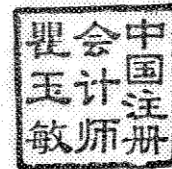 中国注册
会计师
瞿玉敏